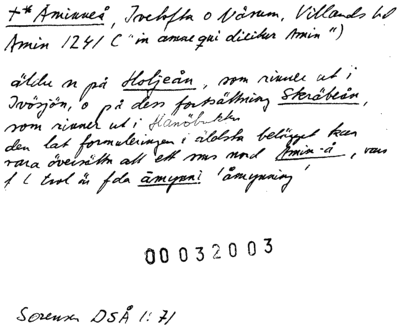 +* Aminneå, Ivetofta o Nåsum, Villands hd
Amin 1241 C "in amne qui dicitur Amin")
äldre n på Holjeån, som rinner ut i
Ivösjön, o på dess fortsättning Skräbeån,
som rinner ut i Hanöbukten
den lat formuleringen i äldsta belägget kan
vara översätta att ett sms med Amin-å, vars
f l trol är fda āmynni 'åmynning'
00032003
Sørensen DSÅ 1:71